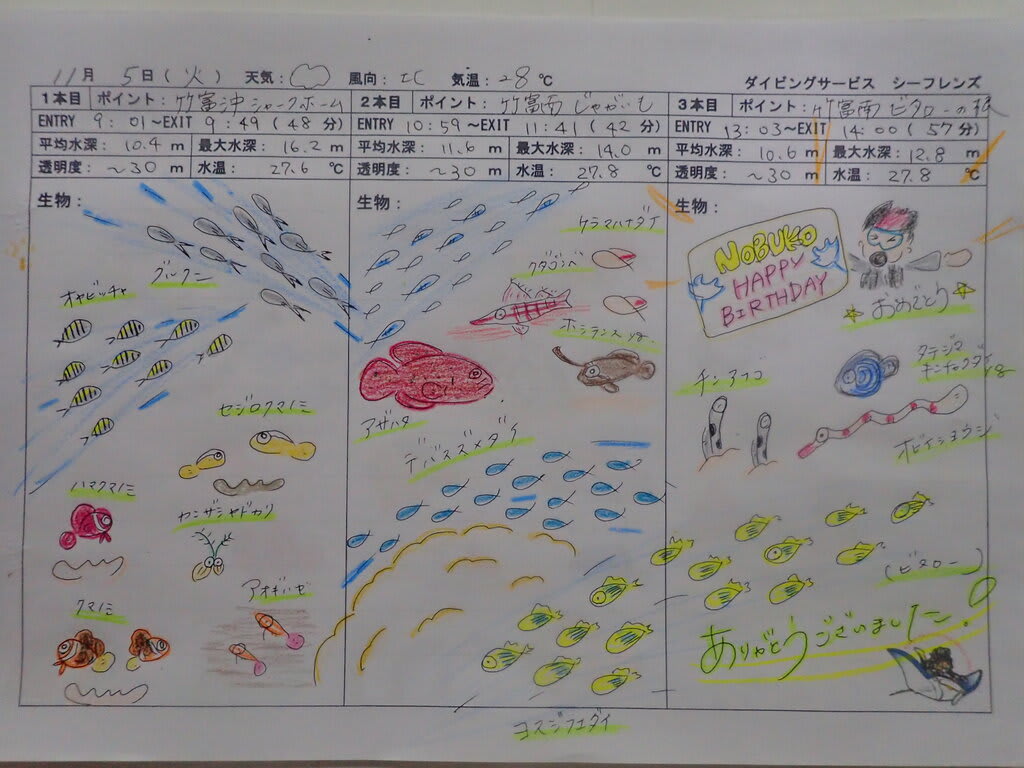 11月 5日(火) 天気: 風向: 北 気温: 28℃ ダイビングサービス シーフレンズ
1本目 ポイント: 竹富沖シャークホーム
ENTRY 9:01~EXIT 9:49(48分)
平均水深: 10.4 m 最大水深: 16.2 m
透明度: ~30 m 水温: 27.6 ℃
生物:
グルクン
オヤビッチャ
セジロクマノミ
ハマクマノミ
カンザシヤドカリ
クマノミ
アオギハゼ
2本目 ポイント: 竹富南じゃがいも
ENTRY 10:59~EXIT 11:41(42分)
平均水深: 11.6 m 最大水深: 14.0 m
透明度: ~30 m 水温: 27.8 ℃
生物:
ケラマハナダイ
クダゴンベ
ホシテンスyg.
アザハタ
デバスズメダイ
ヨスジフエダイ
3本目 ポイント: 竹富南ビタローの根
ENTRY 13:03~EXIT 14:00(57分)
平均水深: 10.6 m 最大水深: 12.8 m
透明度: ~30 m 水温: 27.8 ℃
生物:
NOBUKO
HAPPY
BIRTHDAY
おめでとう
チンアナゴ
タテジマ
キンチャクダイyg
オビイシヨウジ
(ビタロー)
ありがとうございました!